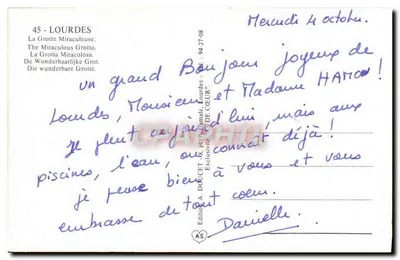 45 - LOURDES
La Grotte Miraculeuse.
The Miraculous Grotto.
La Grotta Miracolosa.
De Wonderbaarlijke Grot.
Die wunderbare Grotte.
Mercredi 4 octobre.
un grand Bonjour joyeux de
Lourdes, Monsieur et Madame HAMON !
Il pleut aujourd'hui, mais aux
piscines, l'eau, on connaît déjà !
je pense bien à vous et vous
embrasse de tout coeur.
Danielle.
Editions A. DOUCET
Lourdes - 94-27-08
Exclusivité "DE CŒUR"
AS
CPAPHIL